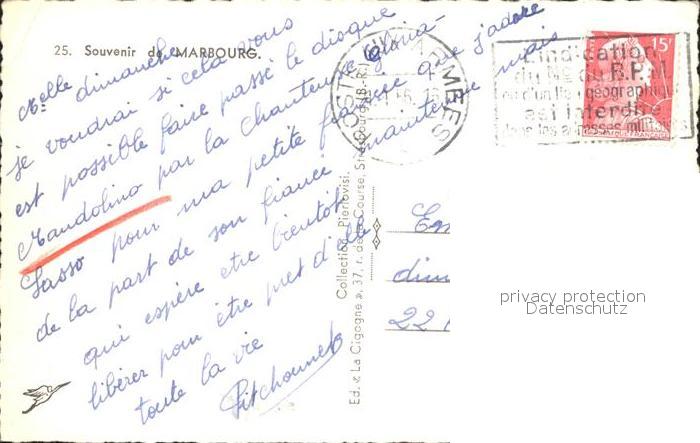 25. Souvenir de MARBOURG.
Melle dimanche
je voudrai si cela vous
est possible faire passé le disque
Mandolino par la chanteuse Gloria-
Lasso pour ma petite femme que j'adore
de la part de son fiancé maintenue mais
qui espère etre bientôt
libérer pour être pret d'elle
toute la vie
Pitchounet
Collection Pierlovisi.
Ed. « La Cigogne », 37, r. de la Course, Strasbourg (B.-R.)
POSTE AUX ARMÉES
L'indication
du No du B.P.M
ou d'un lieu géographique
est interdite
dans les adresses militaires
15F
POSTES FRANÇAISE
Em
dim
221
privacy protection
Datenschutz